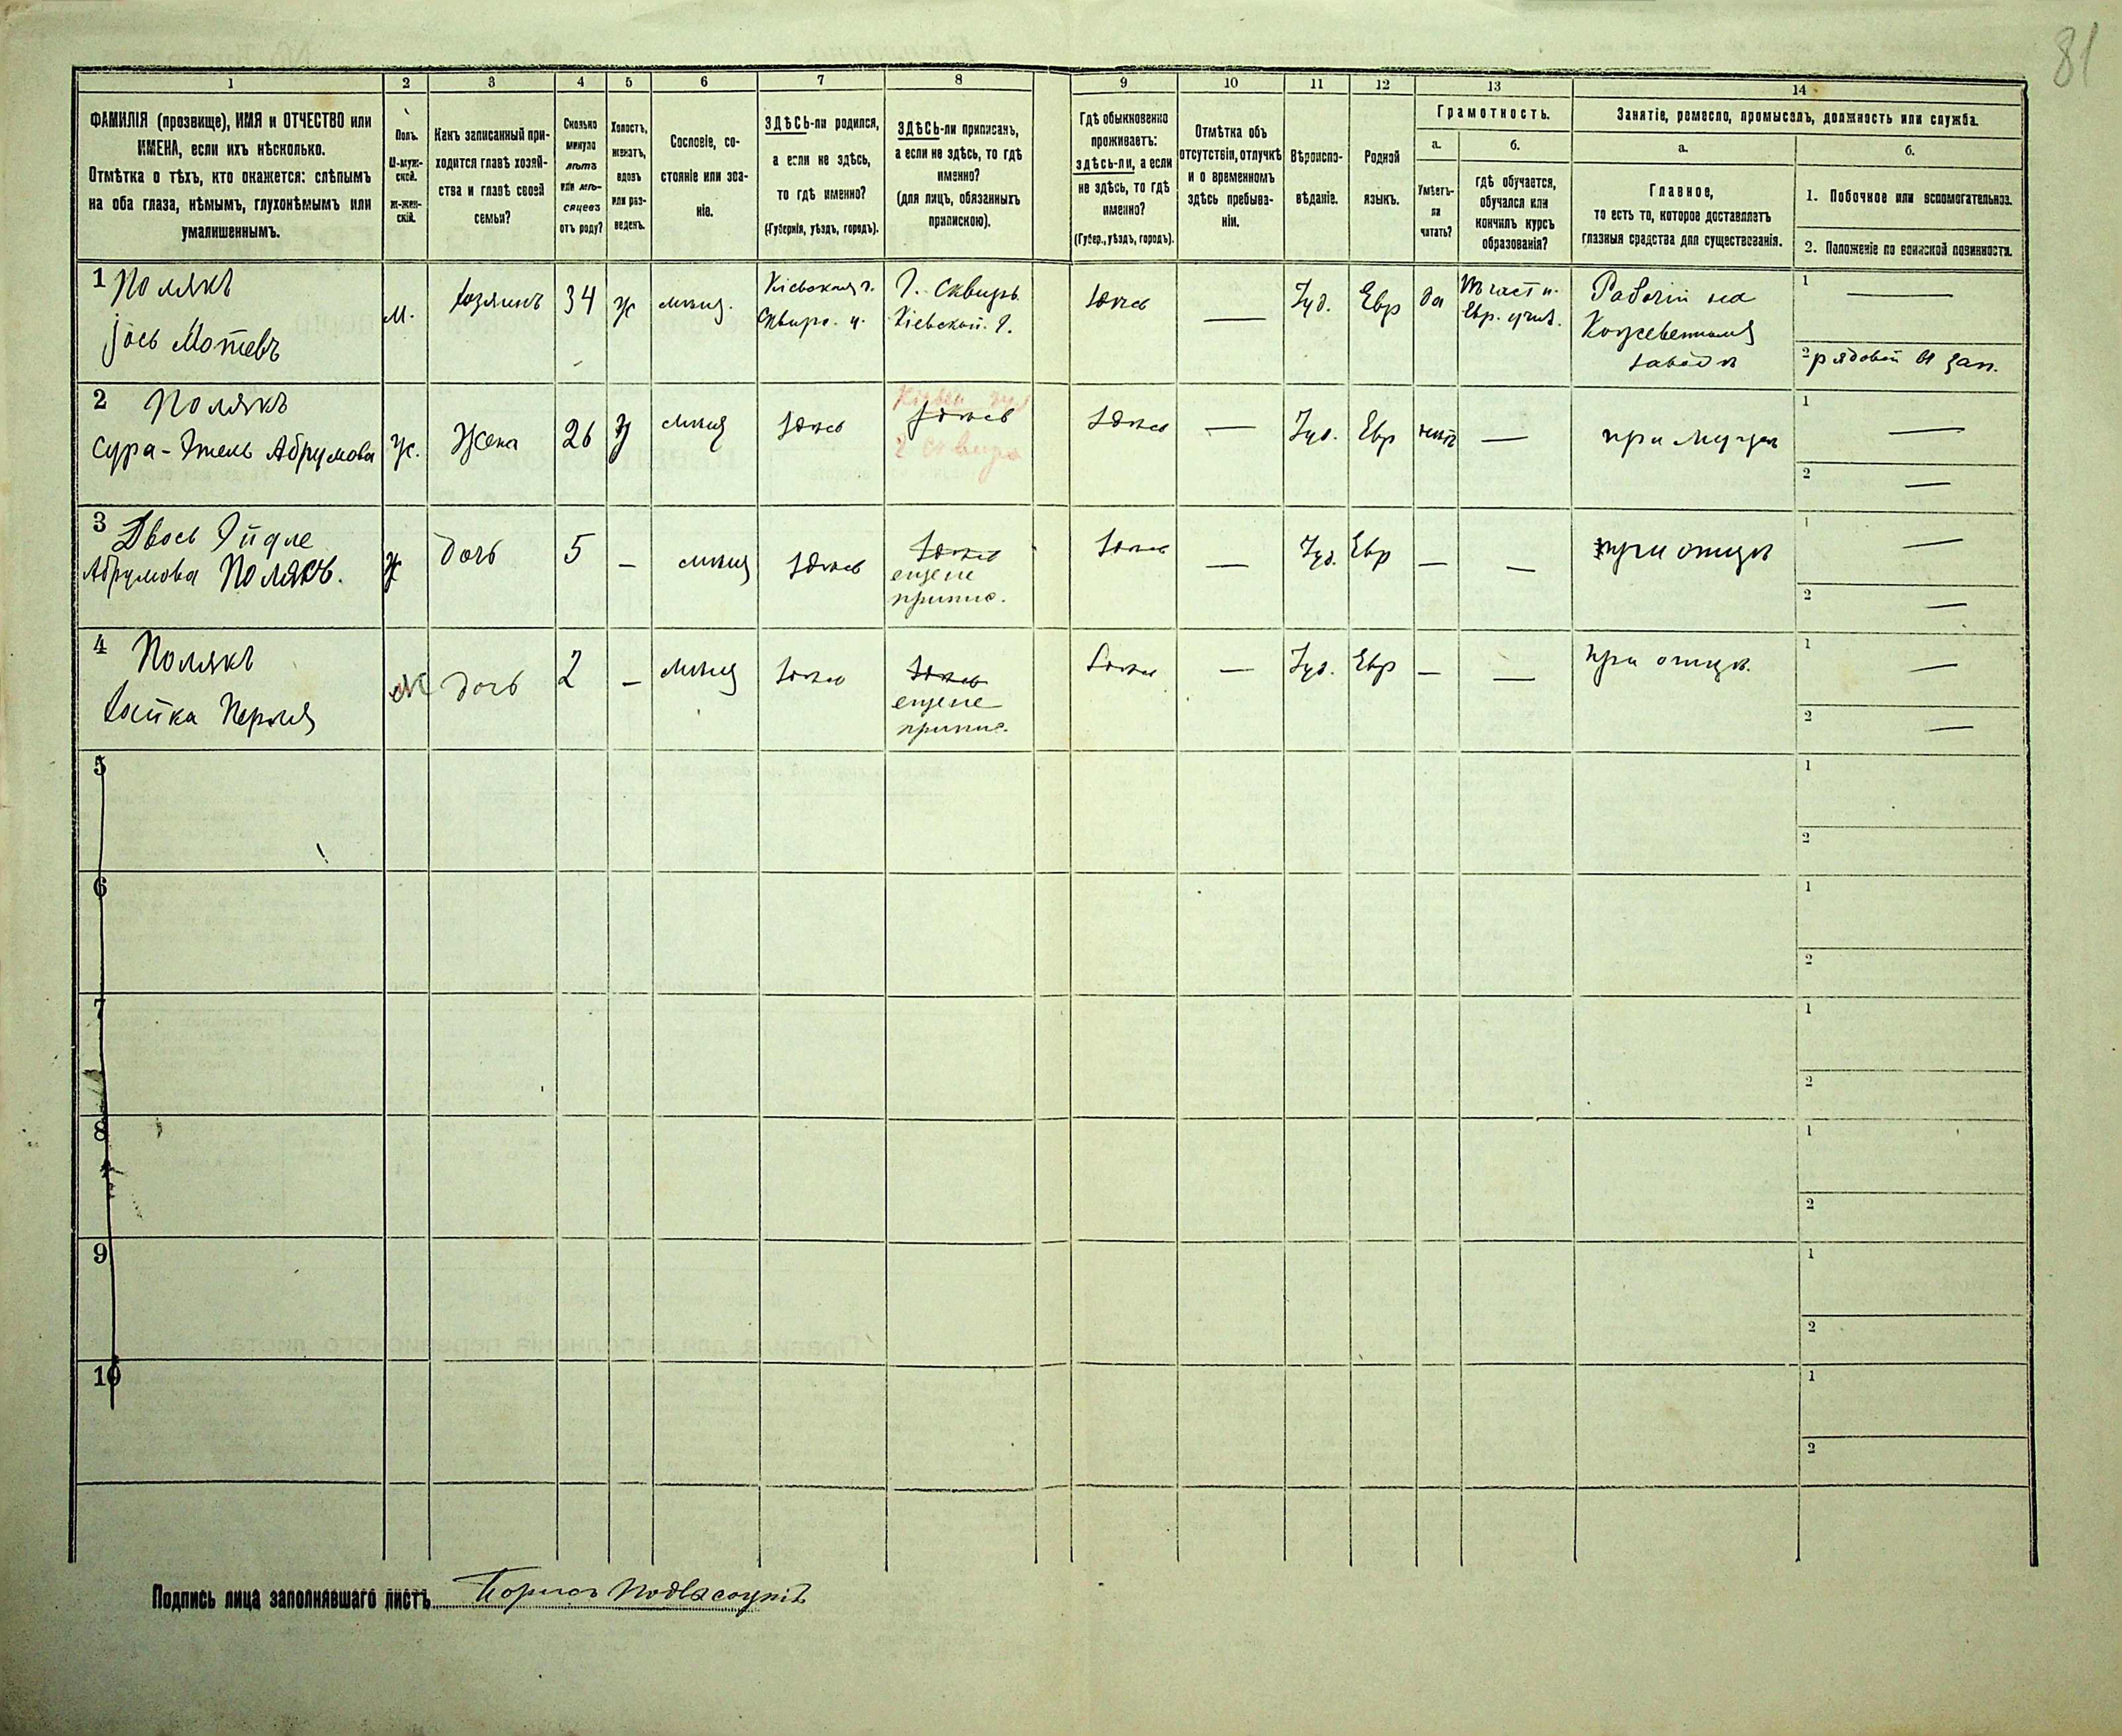 81
1
2
3
4
5
6
7
8
9
10
11
12
13
14
ФАМИЛІЯ (прозвище), ИМЯ и ОТЧЕСТВО или
ИМЕНА, если ихъ нѣсколько.
Отмѣтка о тѣхъ, кто окажется: слѣпымъ
на оба глаза, нѣмымъ, глухонѣмымъ или
умалишеннымъ.
Полъ.
М-муж-
ской.
ж-жен-
скій.
Какъ записанный при-
ходится главѣ хозяй-
ства и главѣ своей
семьи?
Сколько
минуло
лѣтъ
или мѣ-
сяцевъ
отъ роду?
Холостъ,
женатъ,
вдовъ
или раз-
веденъ.
Сословіе, со-
стояніе или зва-
ніе.
ЗДѢСЬ-ли родился,
а если не здѣсь,
то гдѣ именно?
(Губернія, уѣздъ, городъ).
ЗДѢСЬ-ли приписанъ,
а если не здѣсь, то гдѣ
именно?
(для лицъ, обязанныхъ
припискою).
Гдѣ обыкновенно
проживаетъ:
здѣсь-ли, а если
не здѣсь, то гдѣ
именно?
(Губер., уѣздъ, городъ).
Отмѣтка объ
отсутствіи, отлучкѣ
и о временномъ
здѣсь пребыва-
ніи.
Вѣроиспо-
вѣданіе.
Родной
языкъ.
Грамотность.
а.
Умѣетъ-
ли
читать?
б.
гдѣ обучается,
обучался или
кончилъ курсъ
образованія?
Занятіе, ремесло, промыселъ, должность или служба.
а.
Главное,
то есть то, которое доставляетъ
главныя средства для существованія.
б.
1. Побочное или вспомогательное.
2. Положеніе по воинской повинности.
1 Полякъ
Іось Мотевъ
М.
хозяинъ
34
ж
мѣщ.
Кіевская г.
Сквирс. у.
Г. Сквиръ
Кіевской. г.
Здѣсь
—
Іуд.
Евр
да
Въ част н.
Евр. учил.
Рабочій на
Кожевенномъ
заводѣ
1 —
2 рядовой въ зап.
2 Полякъ
Сура-Этель Абрумова
ж.
Жена
26
З
мѣщ
Здѣсь
Кіевск губ
Здѣсь
г Сквира
Здѣсь
—
Іуд.
Евр
нѣтъ
—
при мужѣ
1 —
2 —
3 Двося Эйдле
Абрумова Полякъ.
Ж
дочь
5
—
мѣщ
Здѣсь
Здѣсь
еще не
припис.
Здѣсь
—
Іуд.
Евр
—
—
при отцѣ
1 —
2 —
4 Полякъ
Хайка Перля
дочь
2
—
мѣщ
Здѣсь
Здѣсь
еще не
припис.
Здѣсь
—
Іуд.
Евр
—
—
при отцѣ.
1 —
2 —
5
1
2
6
1
2
7
1
2
8
1
2
9
1
2
10
1
2
Подпись лица заполнявшаго листъ Борисъ Подвысоцкій